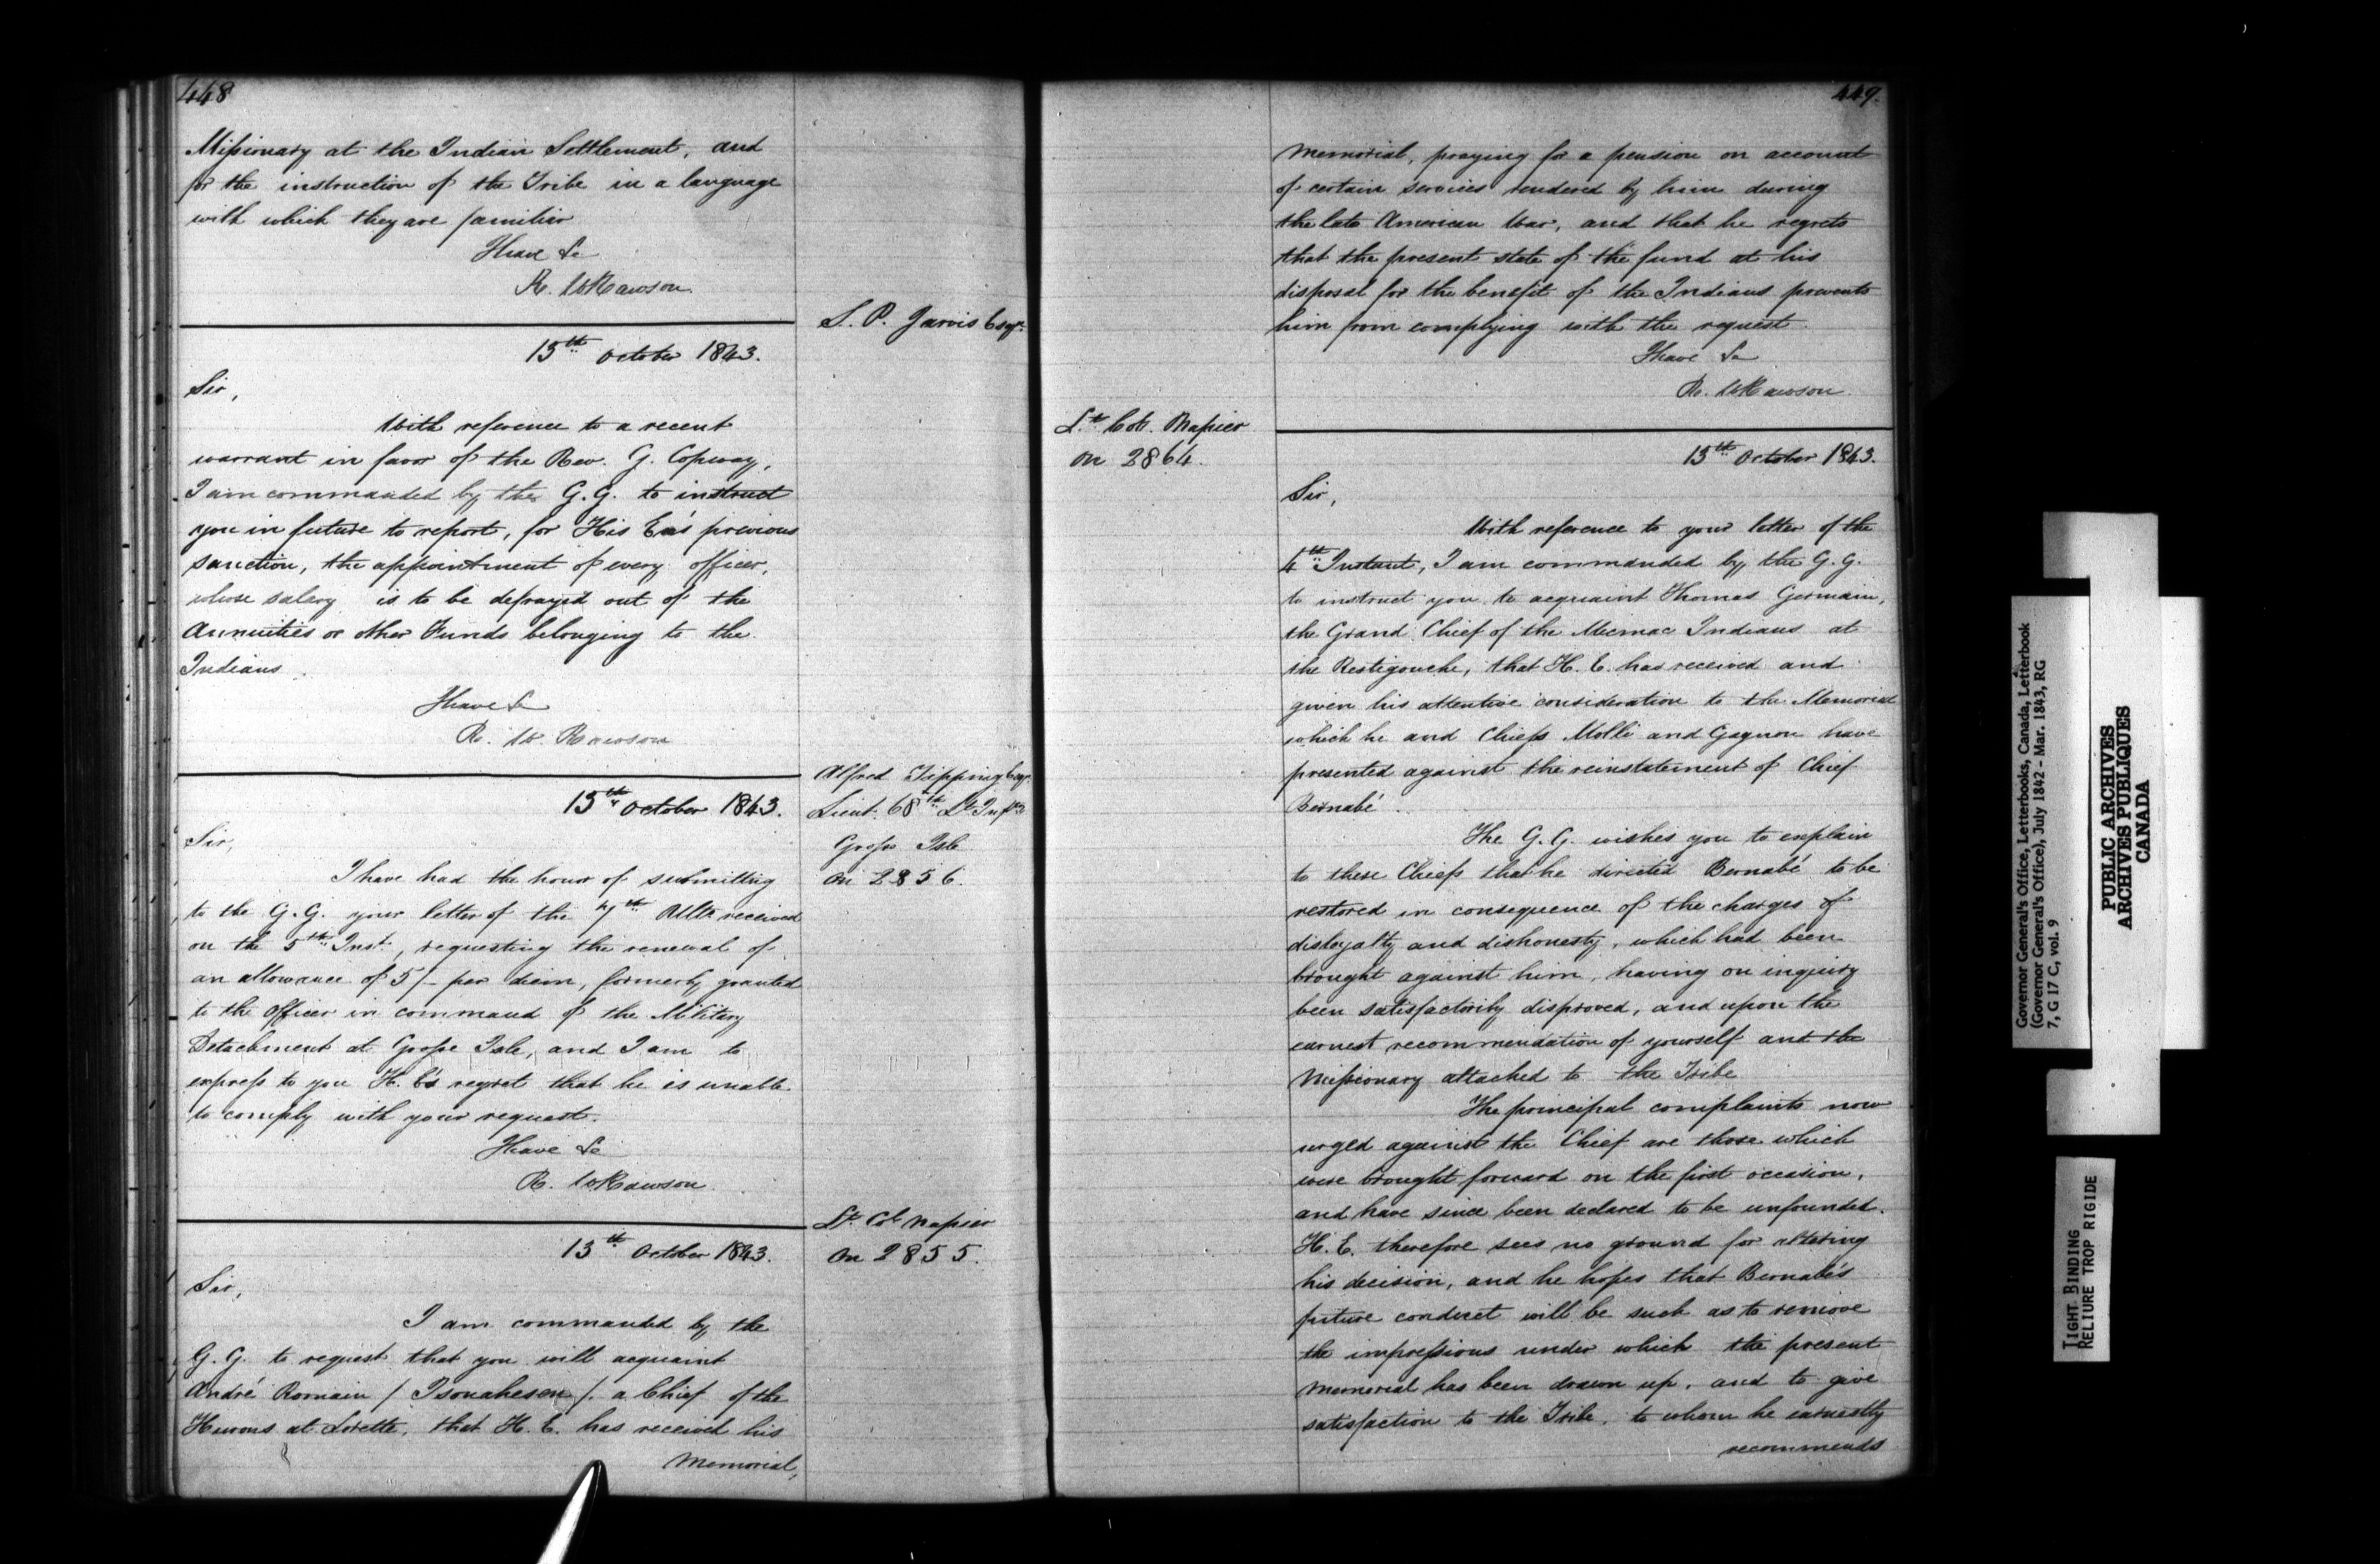 448
Missionary at the Indian Settlement, and
for the instruction of the Tribe in a language
with which they are familiar
I have &c
R. W Rawson
S. P. Jarvis Esqr.
13th October 1843.
Sir,
With reference to a recent
warrant in favor of the Rev. G. Copway,
I am commanded by the G.G. to instruct
you in future to report, for His Ex's previous
sanction, the appointment of every officer,
whose salary is to be defrayed out of the
Annuities or other Funds belonging to the
Indians.
I have &c
R. W. Rawson
Alfred Tipping Esqr.
Lieut. 68th Lt. Infy.
Grosse Isle
On 2856.
13th October 1843.
Sir,
I have had the honor of submitting
to the G.G. your letter of the 7th Ulto received
on the 5th Inst., requesting the renewal of
an allowance of 5/- per diem, formerly granted
to the Officer in command of the Military
Detachment at Grosse Isle, and I am to
express to you H. E's regret that he is unable
to comply with your request.
I have &c
R. W Rawson
Lt. Col Napier
On 2855.
13th October 1843.
Sir,
I am commanded by the
G.G. to request that you will acquaint
André Romain / Tsouahesen /. a Chief of the
Hurons at Lorette, that H. E. has received his
Memorial,
449.
Memorial, praying for a pension on account
of certain services rendered by him during
the late American War, and that he regrets
that the present state of the fund at his
disposal for the benefit of the Indians prevents
him from complying with the request.
I have &c
R. W Rawson.
Lt. Col. Napier
On 2864.
13th October 1843.
Sir,
With reference to your letter of the
4th Instant, I am commanded by the G.G.
to instruct you to acquaint Thomas Germain,
the Grand Chief of the Micmac Indians at
the Restigouche, that H. E. has received and
given his attentive consideration to the Memorial
which he and Chiefs Molli and Gagnon have
presented against the reinstatement of Chief
Bernabé.
The G.G. wishes you to explain
to these Chiefs that he directed Bernabé to be
restored in consequence of the charges of
disloyalty and dishonesty, which had been
brought against him, having on inquiry
been satisfactorily disproved, and upon the
earnest recommendation of yourself and the
Missionary attached to the Tribe
The principal complaints now
urged against the Chief are those which
were brought forward on the first occasion,
and have since been declared to be unfounded.
H. E. therefore sees no ground for altering
his decision, and he hopes that Bernabé's
future conduct will be such as to remove
the impressions under which the present
Memorial has been drawn up, and to give
satisfaction to the Tribe, to whom he earnestly
recommends
Governor General's Office, Letterbooks, Canada, Letterbook
(Governor General's Office), July 1842 - Mar. 1843, RG
7, G 17 C, vol. 9
PUBLIC ARCHIVES
ARCHIVES PUBLIQUES
CANADA
TIGHT BINDING
RELIURE TROP RIGIDE